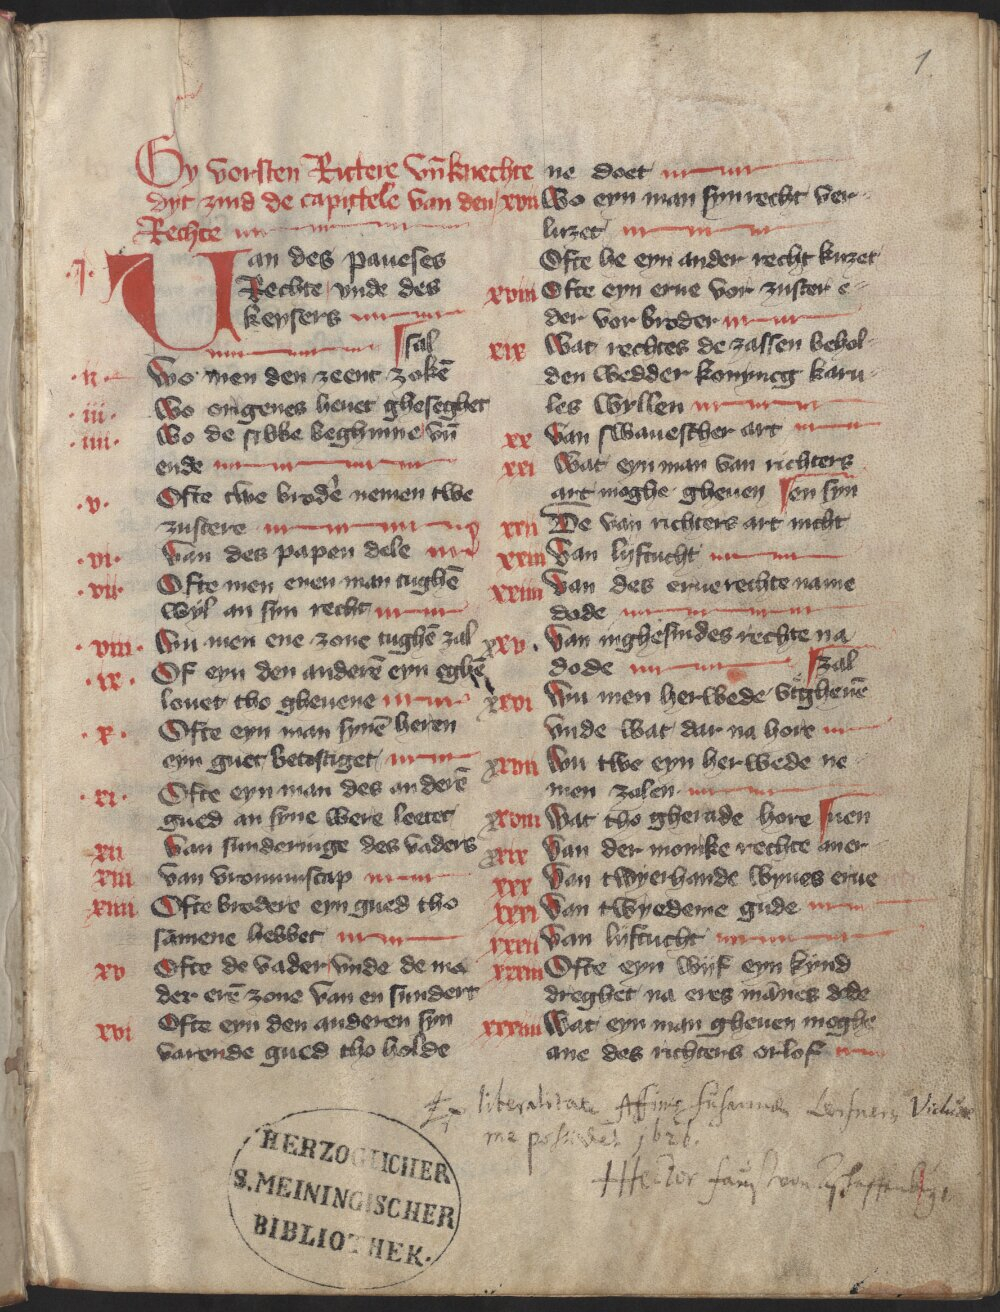 1
Gy vorsten Rittere vn̄ knechte
dyt zind de capittele van den
Rechte
.I. Uan des paueses
Rechte vnde des
keysers
sal
.ii. Wo men den zeent zokē
.iii. Wo origenes heuet ghesegh̄et
.iiii. Wo de sibbe beghinne vn̄
ende
.v. Ofte twe brod'e nemen twe
zustere
.vi. Van des papen dele
.vii. Ofte men enen man tughē
wyl an syn recht
.viii. Wu men ene zone tughē zal
.ix. Of eyn den anderē eyn eghē
louet tho gheuene
.x. Ofte eyn man synē heren
eyn guet
.xi. Ofte eyn man des anderē
gued an syne were leetet
xii Van sunderinge des vaders
xiii van vromimscap
xiiii Ofte brodere eyn gued tho
sāmene hebbet
xv Ofte de vader vnde de mo
der erē zone van en sundert
xvi Ofte eyn den anderen syn
varende gued tho holde
ne doet
xvii Wo eyn man syn recht ver-
luzet
Ofte he eyn ander recht kuzet
xviii Ofte eyn erue vor zuster e-
der vor broder
xix Wat rechtes de zassen behol-
den wedder konnicg karu-
les wyllen
xx Van swauescher art
xxi Wat eyn man van richters
art moghe gheuen en syn
xxii De van richters art nicht
xxiii Van lyftucht
xxiiii Van des erue rechte na me
dode
xxv. Van inghesindes rechte na
dode zal
xxvi Wu men herwede vtgheuē
vnde wat dar na hore
xxvii Wu twe eyn herwede ne-
men zolen
xxviii Wat tho gherade hore uen
xxix Van der monike rechte aner-
xxx Van twyerhande wyues erue
xxxi Van twyedeme gude
xxxii Van lyftucht
xxxiii Ofte eyn wyf eyn kynd
dreghet na eres mānes dode
xxxiiii Wat eyn man gheuen moghe
ane des richters orlof
Ex liberalitate Affinis Susannae Viduae
me possidet 1626.
Hector
HERZOGLICHER
S. MEININGISCHER
BIBLIOTHEK.